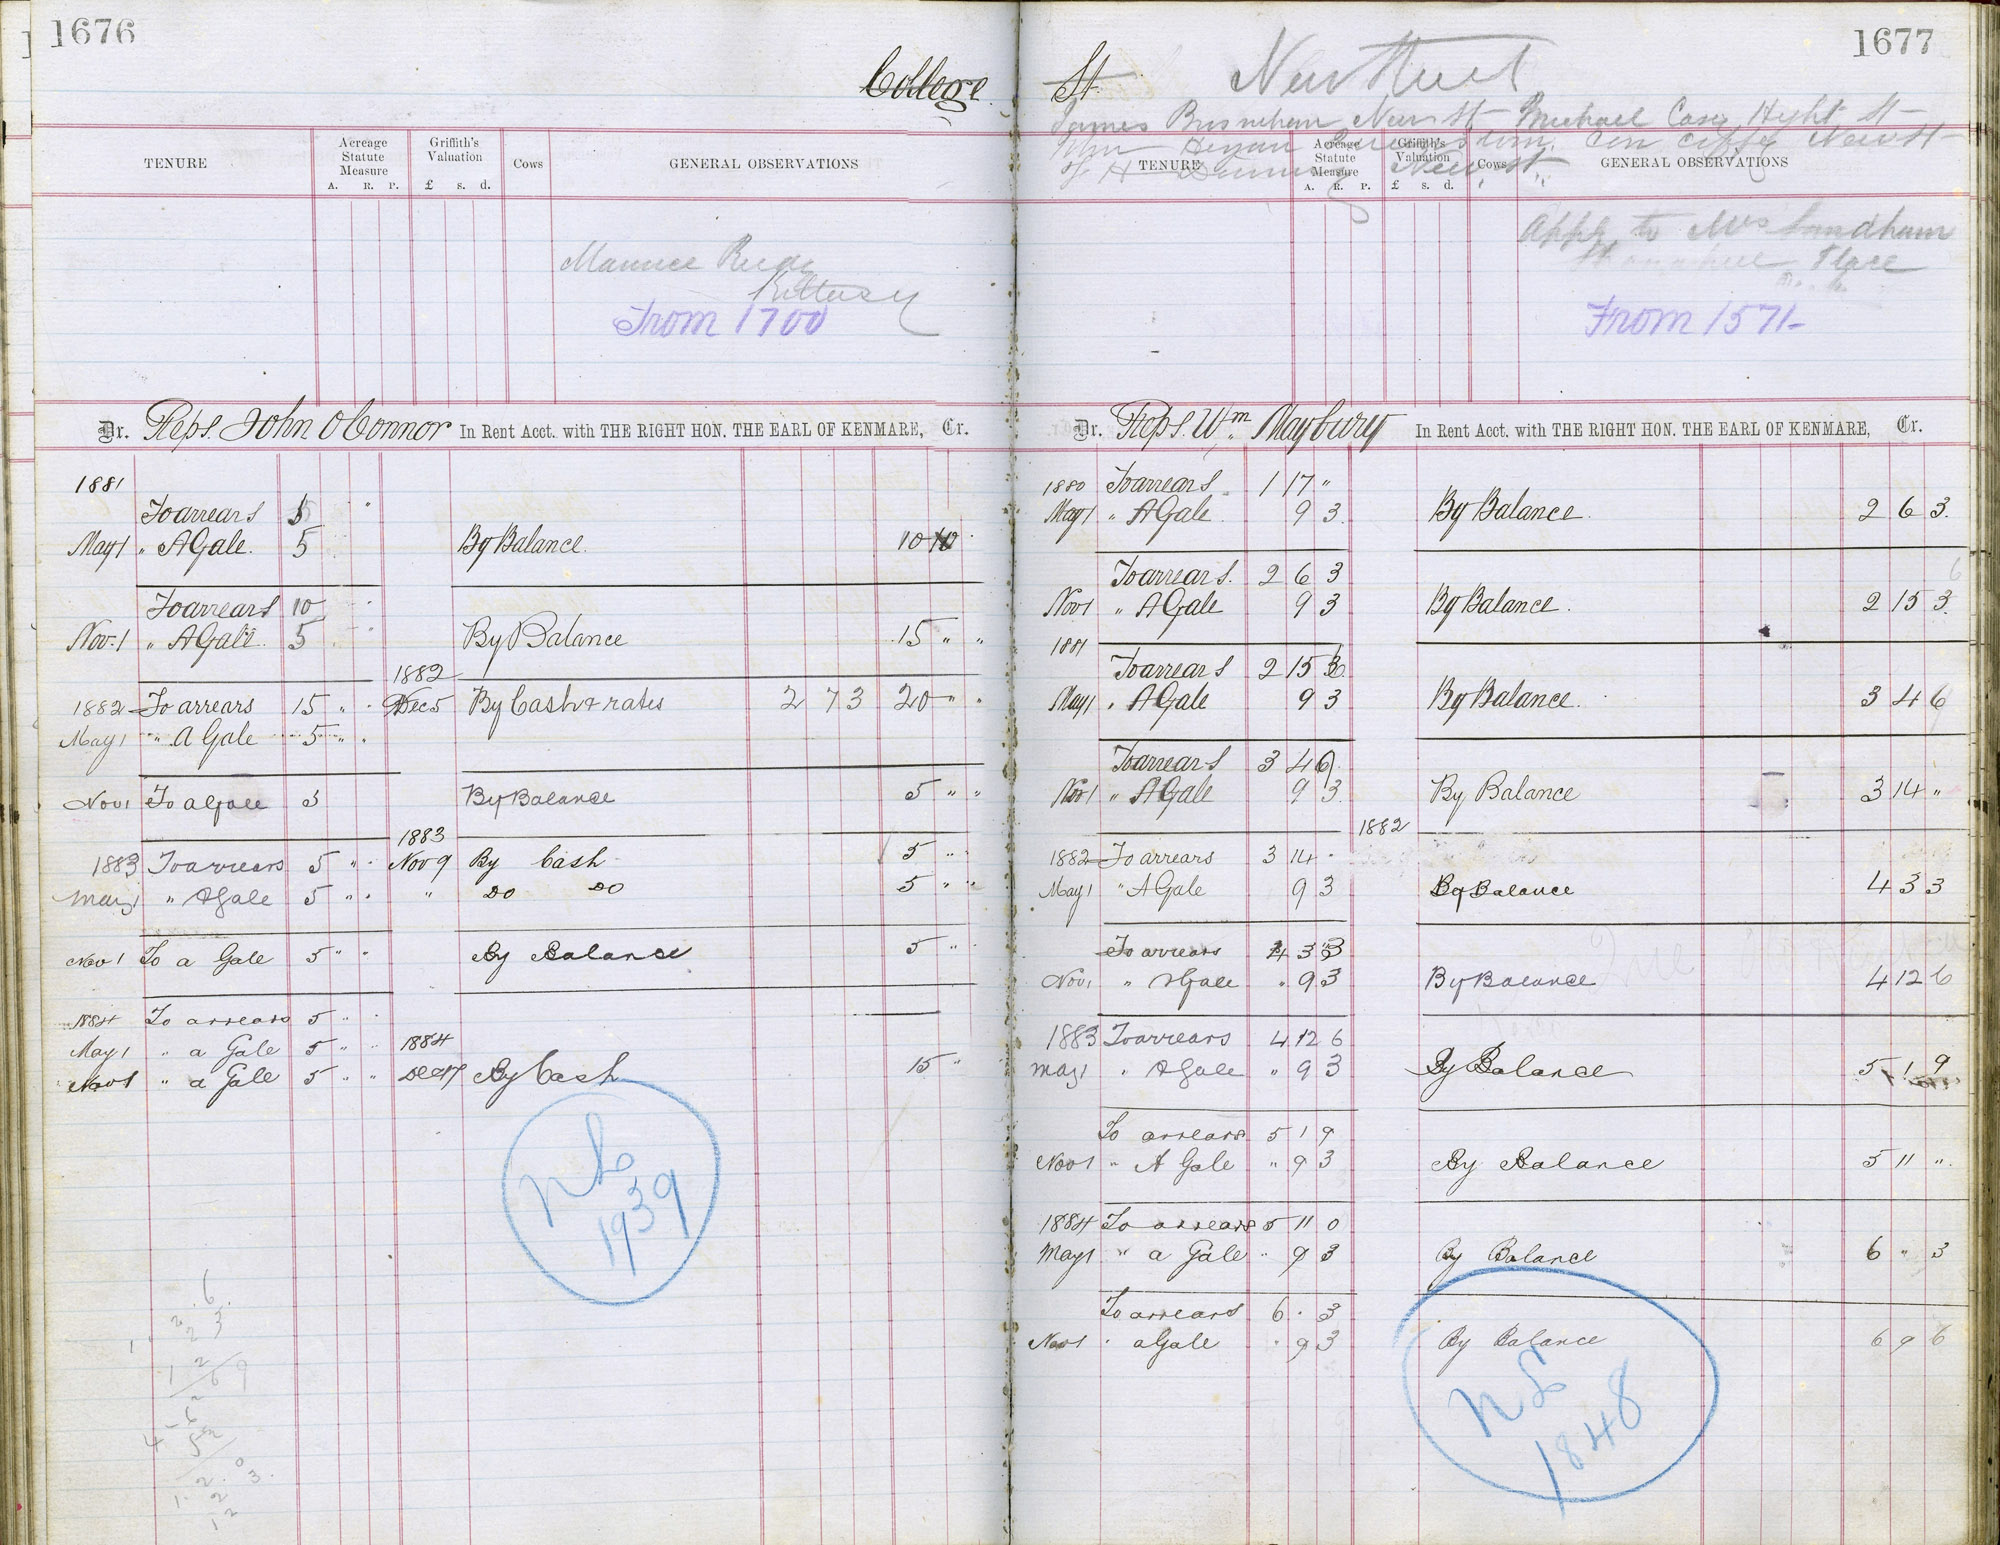 1676
College
TENURE
Acreage Statute Measure
A. R. P.
Griffith's Valuation
£ s. d.
Cows
GENERAL OBSERVATIONS
Maurice
From 1700
Dr. Reps. John O Connor In Rent Acct. with THE RIGHT HON. THE EARL OF KENMARE, Cr.
1881
To arrears 5 "
May 1 " A Gale. 5 By Balance. 10
To arrears 10 "
Nov. 1 " A Gale. 5 By Balance 15 " "
1882
1882 To arrears 15 " " Dec 5 By Cash & rates 2 7 3 20 " "
May 1 " A Gale 5 " "
Nov 1 To a Gale 5 By Balance 5 " "
1883
1883 To arrears 5 " " Nov 9 By Cash 5 " "
May 1 " A Gale 5 " " " Do Do 5 " "
Nov 1 To a Gale 5 " " By Balance 5 " "
1884 To arrears 5 " "
May 1 " a Gale 5 " " 1884
Nov 1 " a Gale 5 " " Dec 17 By Cash 15 "
NL
1939
1677
St. New Street
James New St Michael High St
John New St
New St.
TENURE
Acreage Statute Measure
A. R. P.
Griffith's Valuation
£ s. d.
Cows
GENERAL OBSERVATIONS
Apply to Mrs Sandham
Place
From 1571-
Dr. Reps. Wm. Maybury In Rent Acct. with THE RIGHT HON. THE EARL OF KENMARE, Cr.
1880 To arrears 1 17 "
May 1 " A Gale. 9 3. By Balance. 2 6 3.
To arrears. 2 6 3
Nov 1 " A Gale 9 3 By Balance. 2 15 3.
1881
To arrears 2 15 6
May 1 " A Gale 9 3 By Balance. 3 4 6
To arrears 3 4 9
Nov 1 " A Gale 9 3. By Balance 3 14 "
1882
1882 To arrears 3 14 "
May 1 " A Gale 9 3 By Balance 4 3 3
To arrears 4 3 3
Nov 1 " A Gale " 9 3 By Balance 4 12 6
1883 To arrears 4 12 6
May 1 " A Gale " 9 3 By Balance 5 1 9
To arrears 5 1 9
Nov 1 " A Gale " 9 3 By Balance 5 11 "
1884 To arrears 5 11 0
May 1 " a Gale " 9 3 By Balance 6 " 3
To arrears 6 " 3
Nov 1 " a Gale " 9 3 By Balance 6 9 6
NL
1848